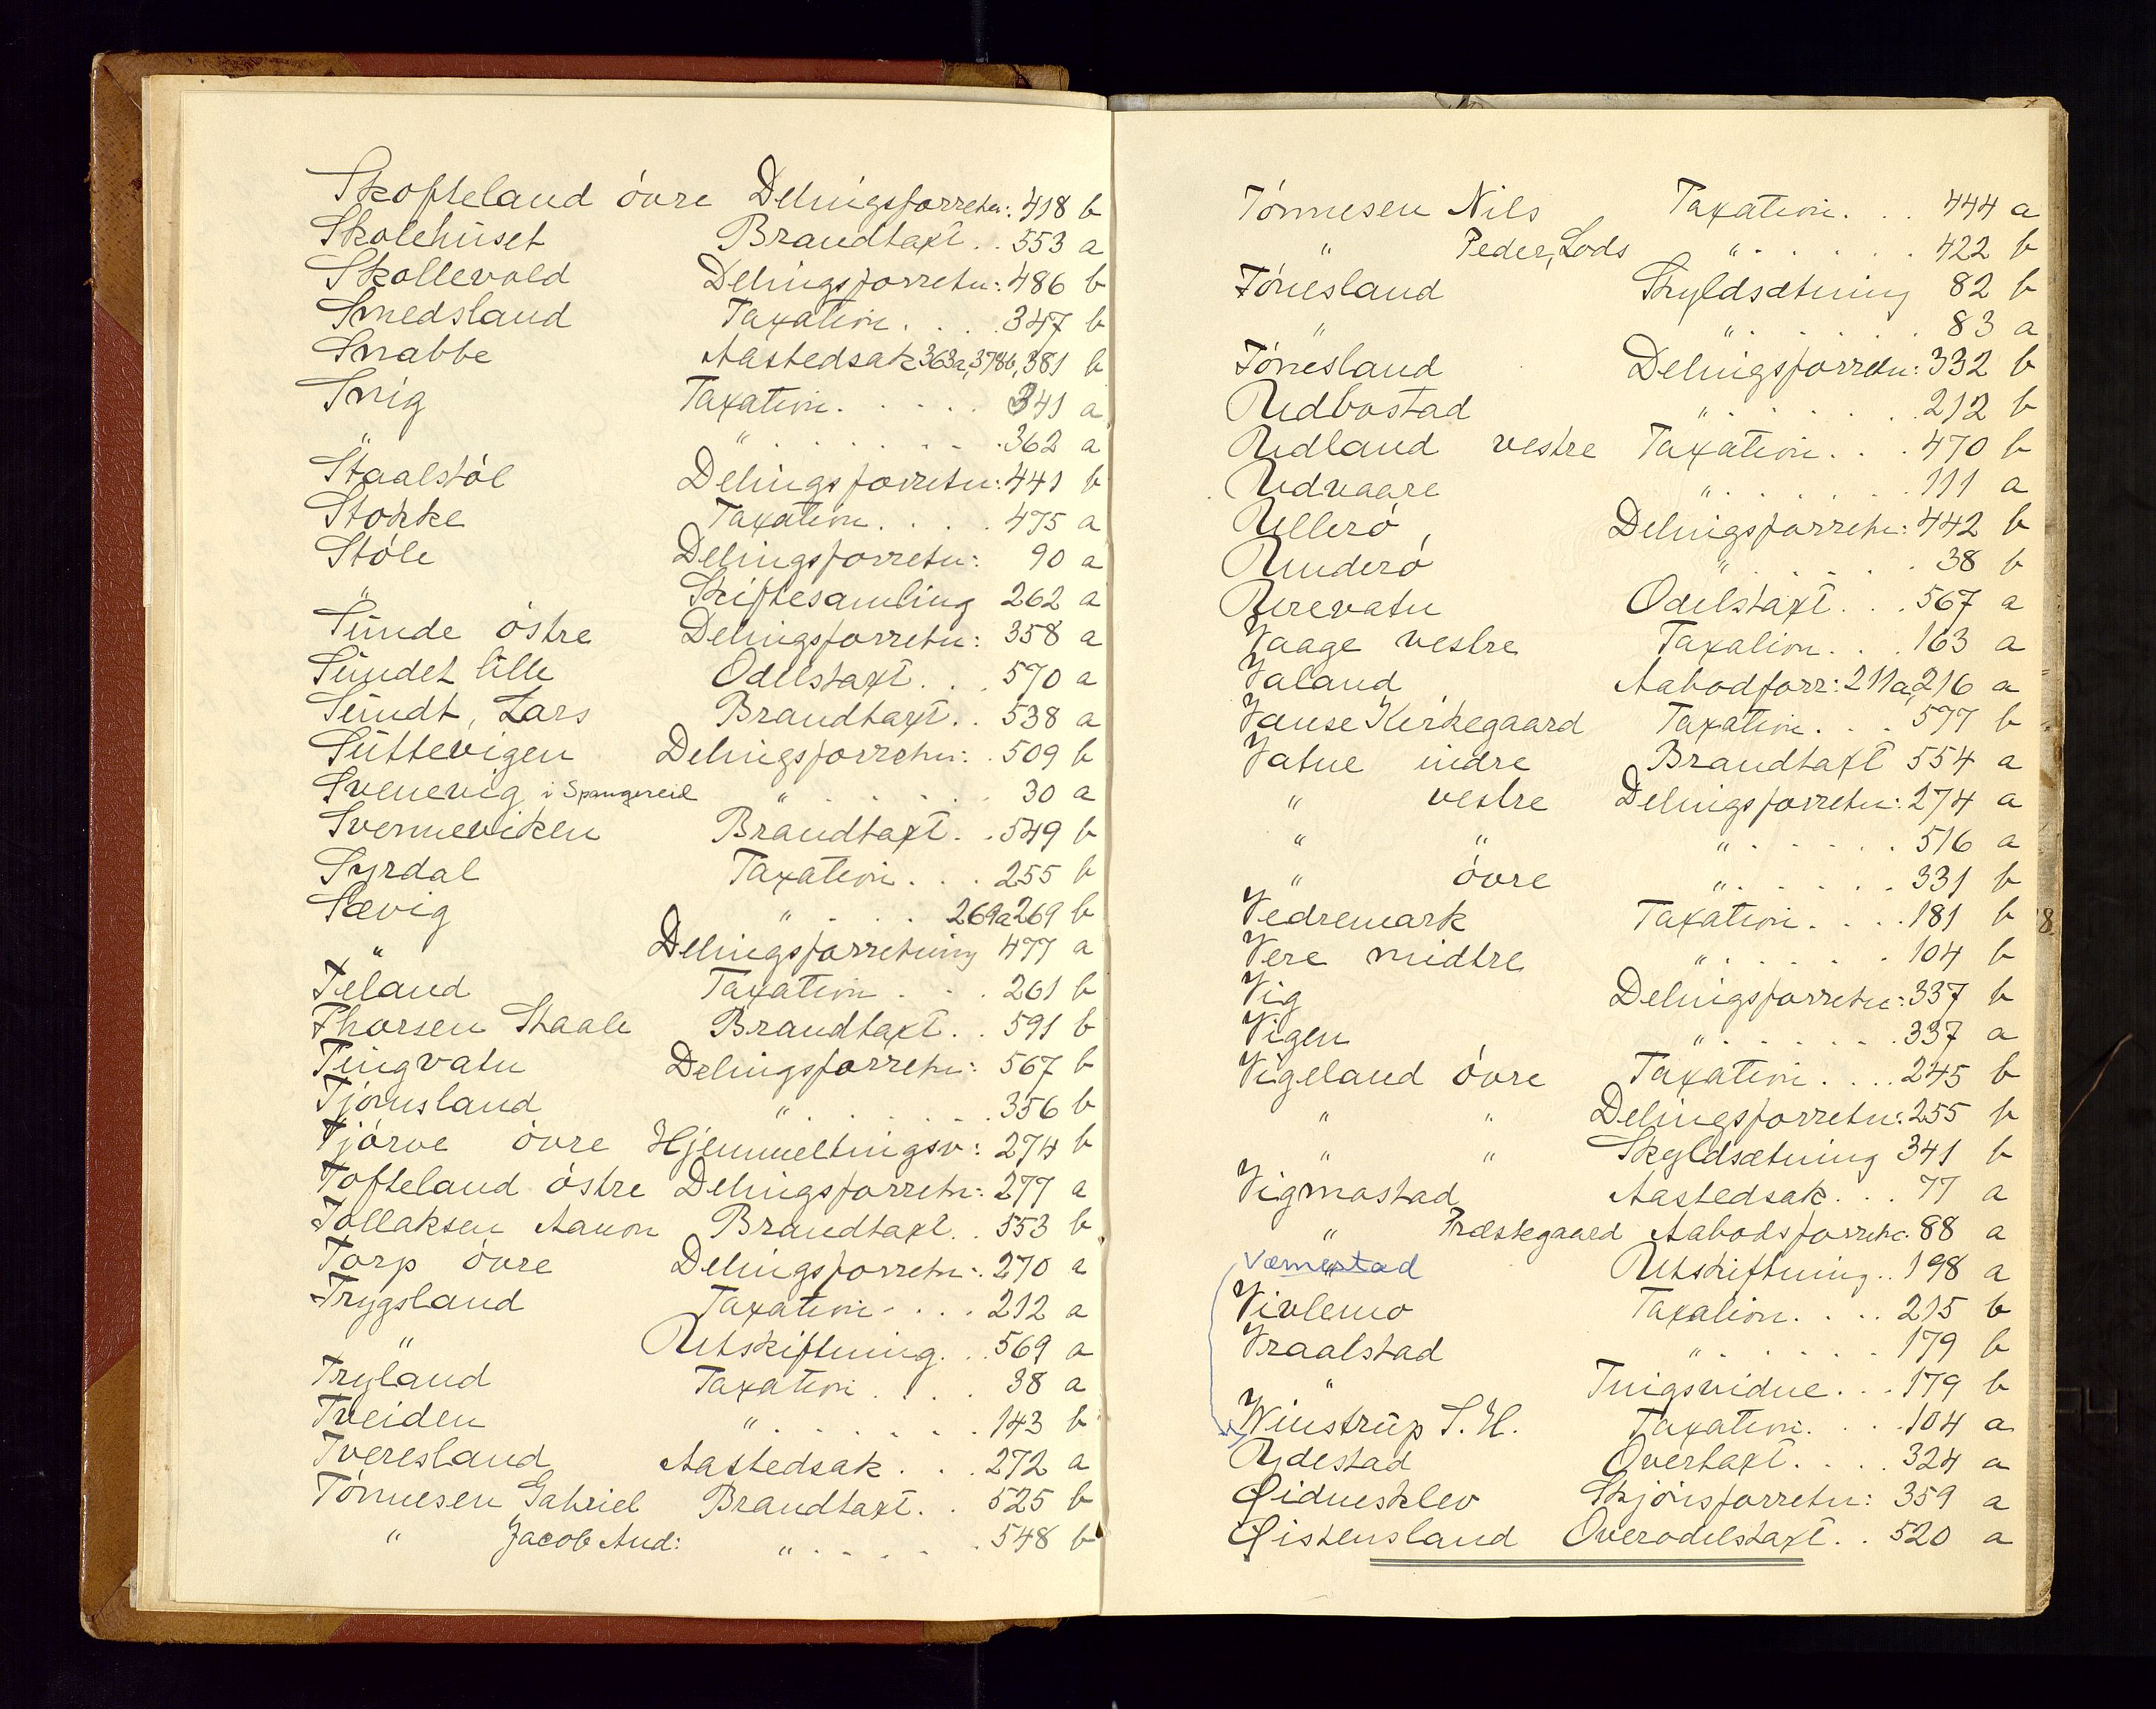 Skofteland óvre Delingsforretn: 418 b
Skolehŭset Brandtaxt . . 553 a
Skollevold Delingsforretn: 486 b
Smedsland Taxation . . . 347 b
Snabbe Aastedsak 363a, 378b, 381 b
Snig Taxation . . . . . 341 a
" " . . . . . . . 362 a
Staalstól Delingsforretn: 441 b
Stokke Taxation . . . . 475 a
Stóle Delingsforretn: 90 a
" Skiftesamling 262 a
Sŭnde óstre Delingsforretn: 358 a
Sŭndet lille Odelstaxt . . . 570 a
Sŭndt, Lars Brandtaxt . . 538 a
Sŭttevigen Delingsforretn: . 509 b
Svenevig i Spangereid " . . . . . . 30 a
Svenneviken Brandtaxt . . 549 b
Syrdal Taxation . . . 255 b
Sævig " . . . . 269a 269 b
" Delingsforretning 477 a
Teland Taxation . . . 261 b
Thorsen Staale Brandtaxt . . 591 b
Tingvatn Delingsforretn: 567 b
Tjómsland " . . . . . . 356 b
Tjórve óvre Hjemmeltingsv: 274 b
Tofteland óstre Delingsforretn: 277 a
Tollaksen Aanon Brandtaxt . . 553 b
Torp óvre Delingsforretn: 270 a
Trygsland Taxation . . . 212 a
" Utskiftning . . . 569 a
Tryland Taxation . . . . 38 a
Tveiden " . . . . . . . 143 b
Tveresland Aastedsak . . . 272 a
Tónnesen Gabriel Brandtaxt . . 525 b
" Jacob And: " . . . . . . 548 b
Tónnesen Nils Taxation . . . 444 a
" Peder, Lods " . . . . . . 422 b
Tónesland Skyldsætning 82 b
" " . . . . . . 83 a
Tónesland Delingsforretn: 332 b
Udbostad " . . . . . . 212 b
Udland vestre Taxation . . . 470 b
Udvaare " . . . . . . 111 a
Ulleró Delingsforretn: 442 b
Underó " . . . . . . 38 b
Urevatn Odelstaxt . . . 567 a
Vaage vestre Taxation . . . 163 a
Valand Aabodforr: 211a, 216 a
Vanse Kirkegaard Taxation . . . 577 b
Vatne indre Brandtaxt 554 a
" vestre Delingsforretn: 274 a
" " " . . . . . . 516 a
" óvre " . . . . . . 331 b
Vedremark Taxation . . . . 181 b
Vere midtre " . . . . . . 104 b
Vig Delingsforretn: 337 b
Vigen " . . . . . . . 337 a
Vigeland óvre Taxation . . . . 245 b
" " Delingsforretn: 255 b
" " Skyldsætning 341 b
Vigmostad Aastedsak . . . 77 a
" Præstegaard Aabodsforretn: 88 a
Væmestad Utskiftning . . 198 a
Vivlemo Taxation . . . . 215 b
Vraalstad " . . . . . . 179 b
" Tingsvidne . . . 179 b
Winstrŭp S. H. Taxation . . . 104 a
Ydestad Overtaxt . . . . 324 a
Øidnesklev Skjónsforretn: 359 a
Øistensland Overodelstaxt . . 520 a